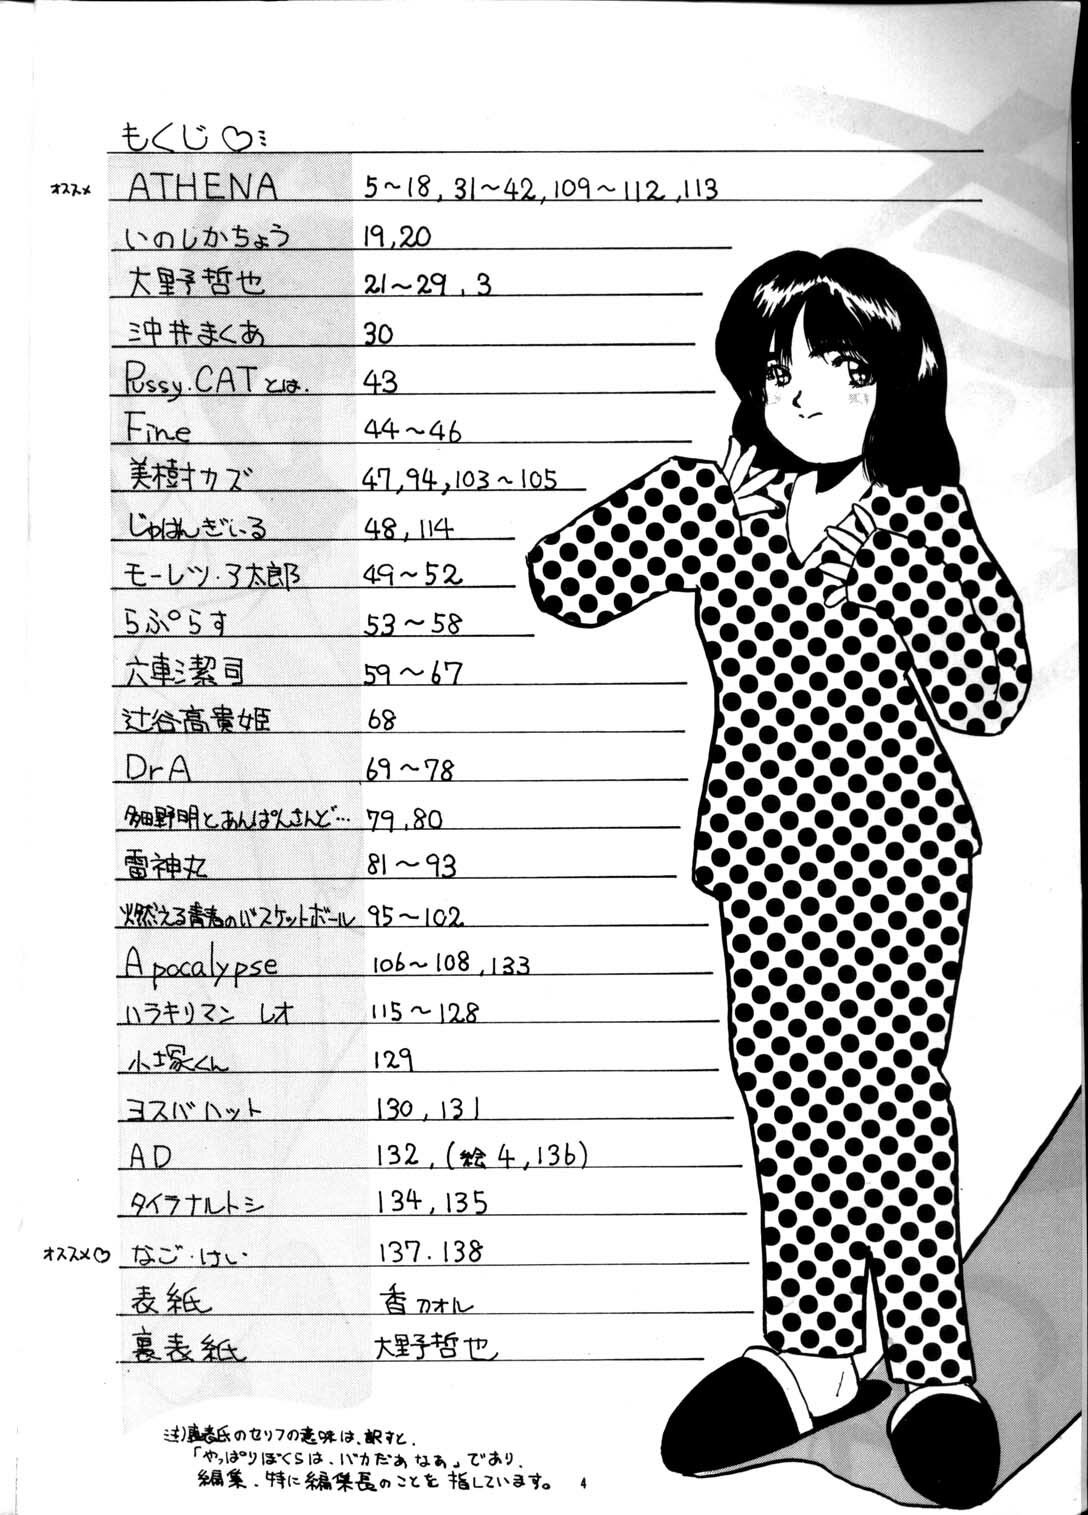 もくじ♡
オススメ ATHENA 5〜18, 31〜42, 109〜112, 113
いのしかちょう 19, 20
大野哲也 21〜29, 3
沖井まくあ 30
Pussy.CATとは. 43
Fine 44〜46
美樹カズ 47, 94, 103〜105
じゅはんぎぃる 48, 114
モーレツ・ア太郎 49〜52
らぷらす 53〜58
六車潔司 59〜67
辻谷高貴姫 68
DrA 69〜78
多田野明とあんぱんさんど… 79, 80
雷神丸 81〜93
燃える青春のバスケットボール 95〜102
Apocalypse 106〜108, 133
ハラキリマン レオ 115〜128
小塚くん 129
ヨスバハット 130, 131
AD 132, (絵4, 136)
タイラナルトシ 134, 135
オススメ♡ なご・けい 137. 138
表紙 香カオル
裏表紙 大野哲也
注)裏表氏のセリフの意味は、訳すと、
「やっぱりぼくらは、バカだあなぁ」であり、
編集、特に編集長のことを指しています。 4